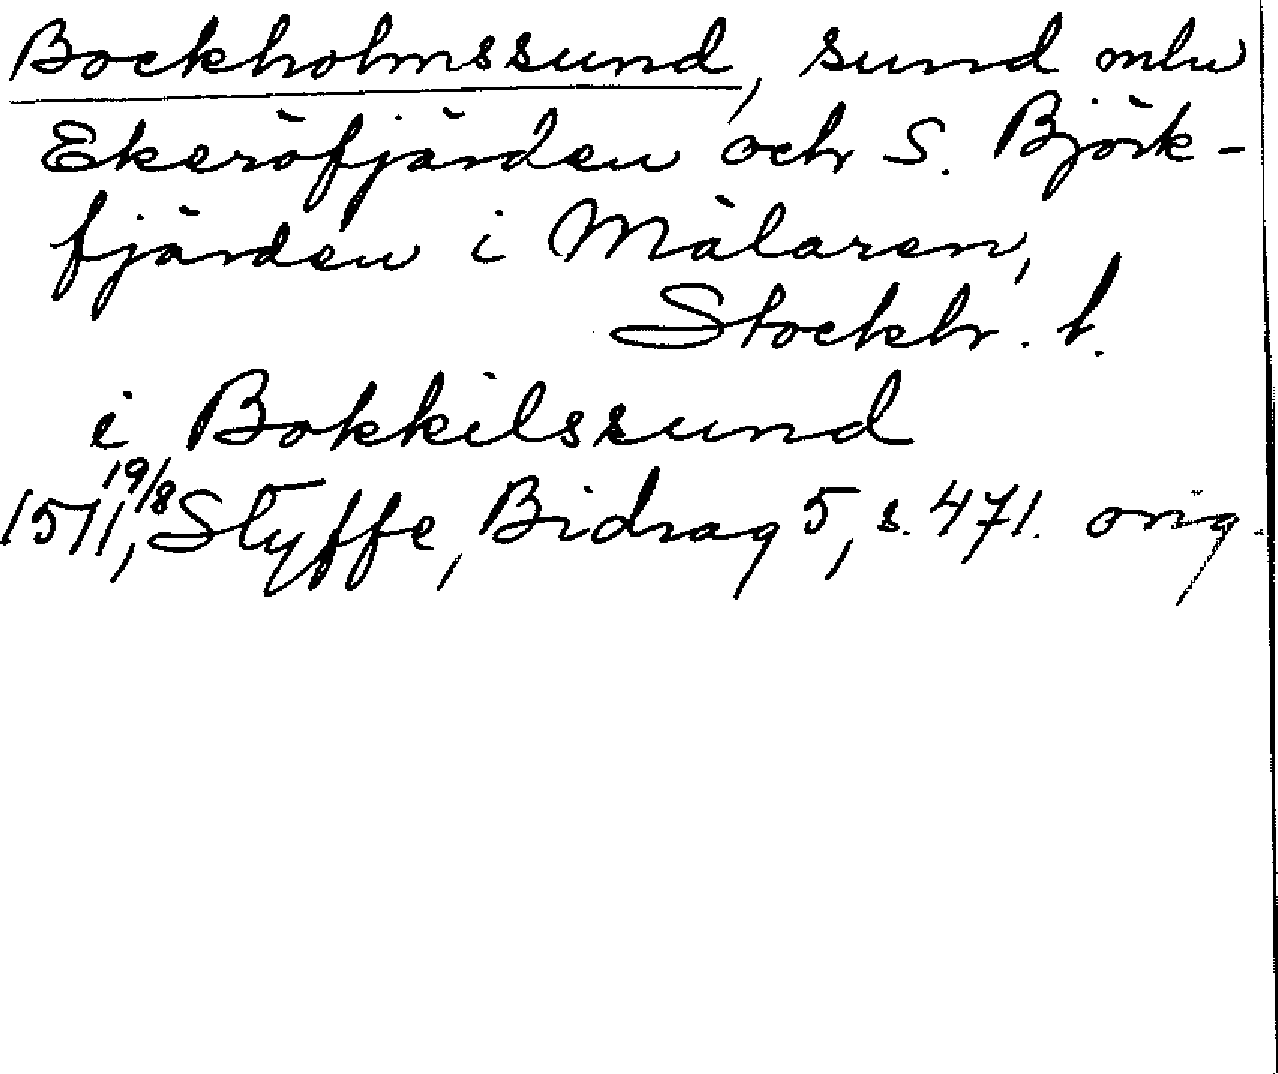 Bockholmssund, sund mlu
Ekeröfjärden och S. Björk-
fjärden i Mälaren,
Stockh. l.
i Bokkilssund
1511, 19/8 Styffe, Bidrag 5, s. 471. orig.